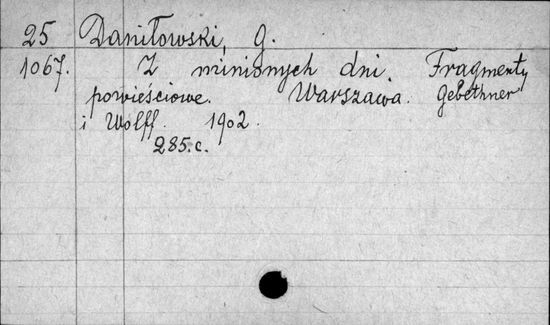 25 Daniłowski, G.
1067. Z minionych dni. Fragmenty
powieściowe. Warszawa. Gebethner
i Wolff. 1902.
285.c.